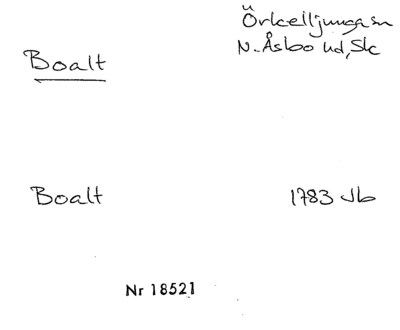 Örkelljunga sn
Boalt
N. Åsbo hd, Sk
Boalt 1783 Jb
Nr 18521